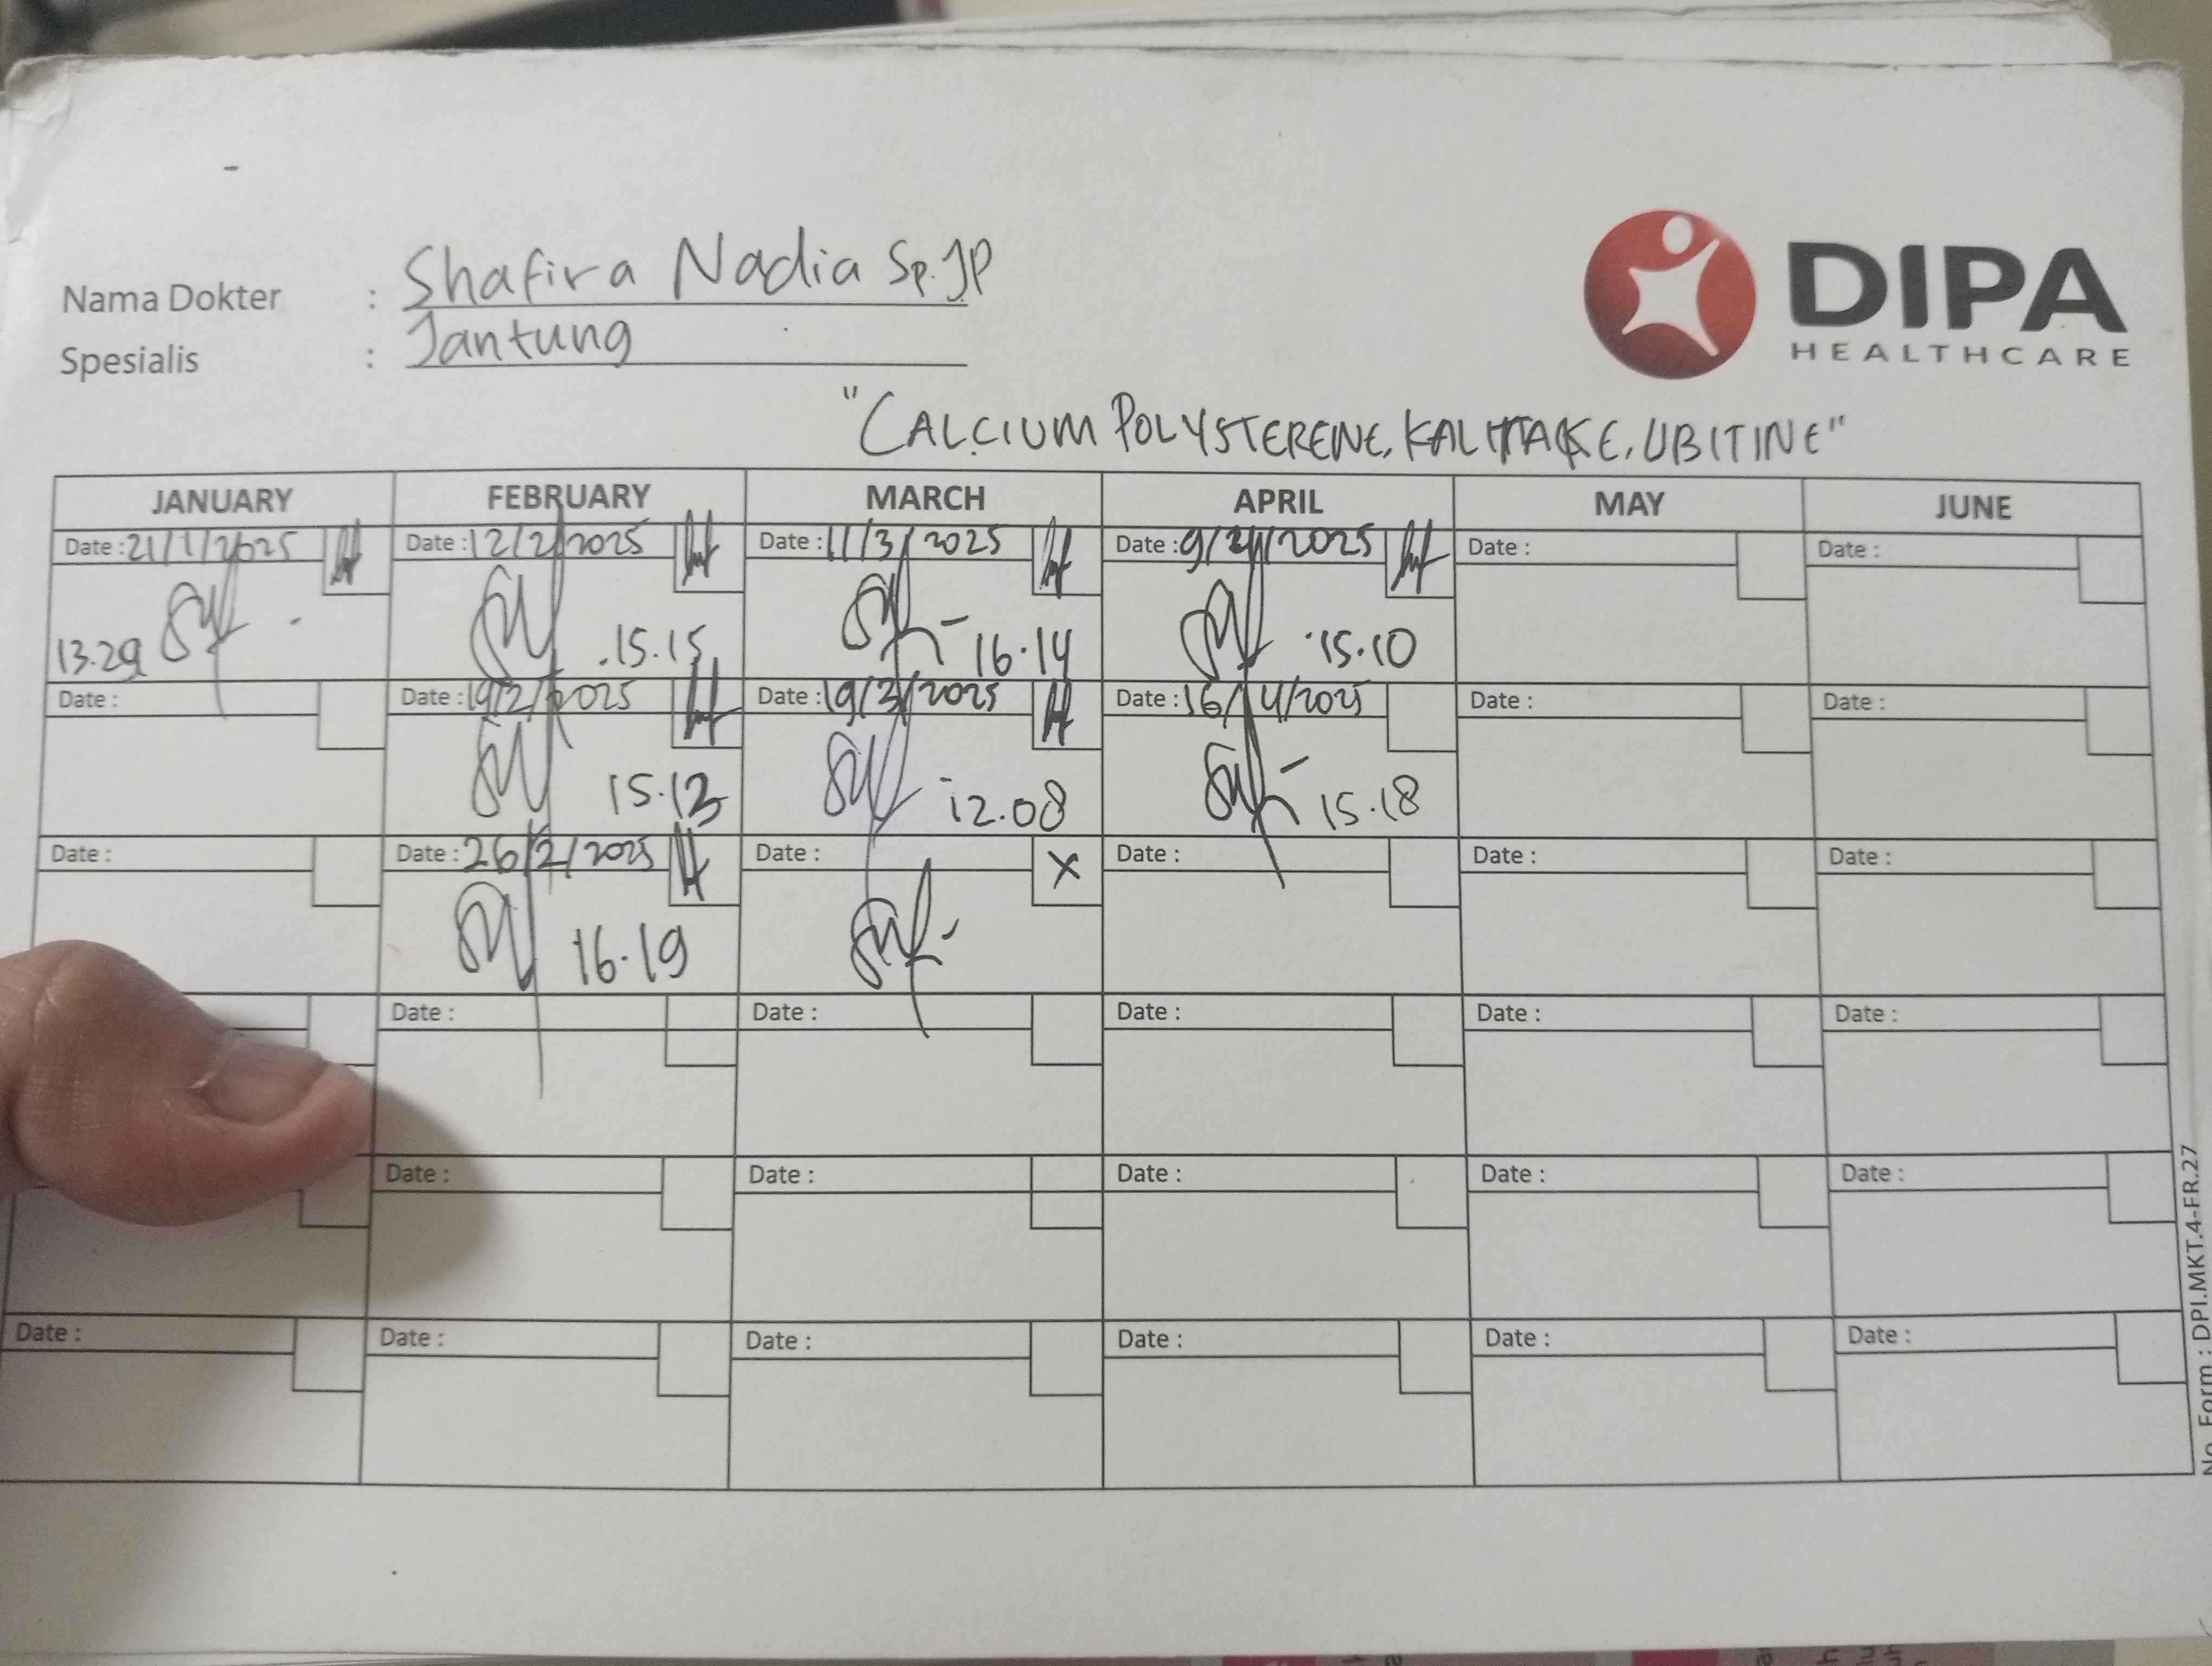 Nama Dokter : Shafira Nadia Sp.JP
Spesialis : Jantung
DIPA
HEALTHCARE
"CALCIUM POLYSTERENE, KALITAKE, UBITINE"
JANUARY FEBRUARY MARCH APRIL MAY JUNE
Date : 21/1/2025 Date : 12/2/2025 Date : 11/3/2025 Date : 9/4/2025 Date : Date :
13.29 15.15 16.14 15.10
Date : Date : 19/2/2025 Date : 19/3/2025 Date : 16/4/2025 Date : Date :
15.13 12.08 15.18
Date : Date : 26/2/2025 Date : X Date : Date : Date :
16.19
Date : Date : Date : Date : Date :
Date : Date : Date : Date : Date :
Date : Date : Date : Date : Date : Date :
No. Form : DPI.MKT.4-FR.27